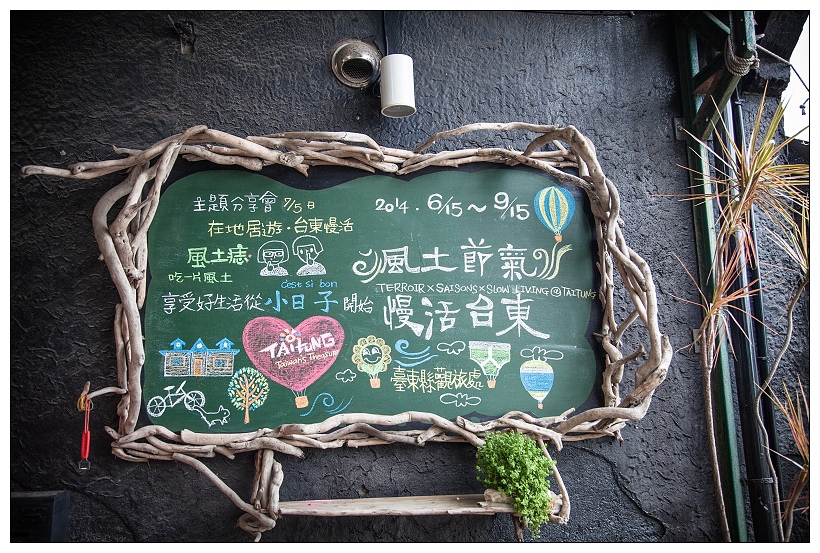 主題分享會 7/5日
在地居遊·台東慢活
風土痣
吃一片風土
c'est si bon
享受好生活從小日子開始
2014.6/15~9/15
風土節氣
TERROIR×SAISONS×SLOW LIVING@TAITUNG
慢活台東
TAITUNG
Taiwan's Treasure
臺東縣觀旅處